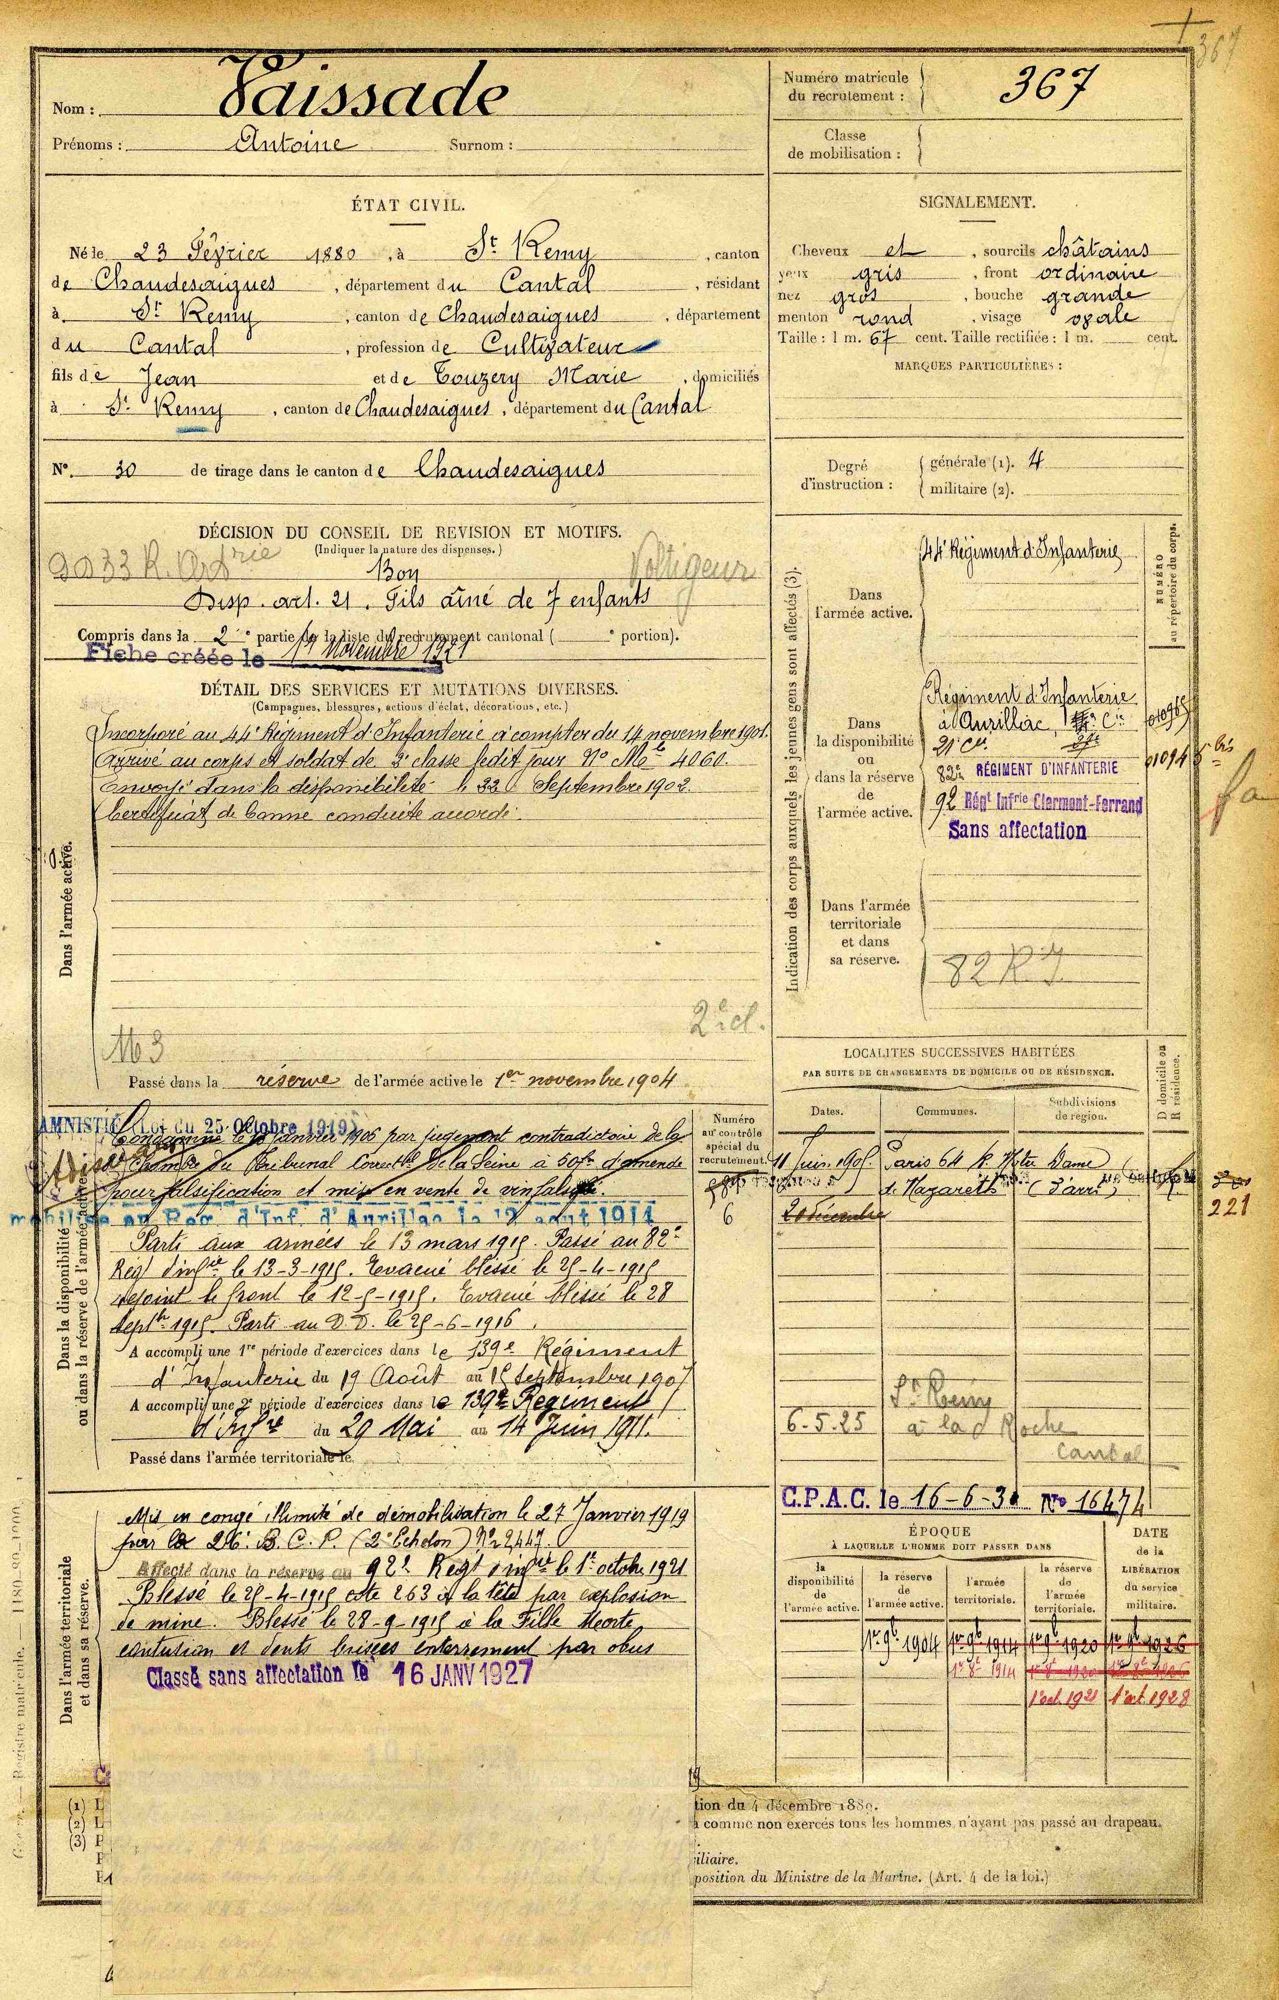 367
Nom : Vaissade
Prénoms : Antoine Surnom :
Numéro matricule du recrutement : 367
Classe de mobilisation :
ÉTAT CIVIL.
Né le 23 Février 1880, à St Remy, canton
de Chaudesaigues, département du Cantal, résidant
à St Remy, canton de Chaudesaigues, département
du Cantal, profession de Cultivateur
fils de Jean et de Touzery Marie, domiciliés
à St Remy, canton de Chaudesaigues, département du Cantal
N° 30 de tirage dans le canton de Chaudesaigues
SIGNALEMENT.
Cheveux et, sourcils châtains
yeux gris, front ordinaire
nez gros, bouche grande
menton rond, visage ovale
Taille : 1 m. 67 cent. Taille rectifiée : 1 m. cent.
MARQUES PARTICULIÈRES :
Degré d'instruction : générale (1). 4
militaire (2).
DÉCISION DU CONSEIL DE REVISION ET MOTIFS.
(Indiquer la nature des dispenses.)
Bon Voltigeur
Disp. art. 21. Fils aîné de 7 enfants
Compris dans la 2e partie de la liste du recrutement cantonal ( e portion).
Fiche créée le Novembre 1921
DÉTAIL DES SERVICES ET MUTATIONS DIVERSES.
(Campagnes, blessures, actions d'éclat, décorations, etc.)
Dans l'armée active.
Incorporé au 44e Régiment d'Infanterie à compter du 14 novembre 1901.
Arrivé au corps et soldat de 2e classe ledit jour N° Mle 4060.
Envoyé dans la disponibilité le 22 Septembre 1902.
Certificat de bonne conduite accordé.
2e cl.
Passé dans la réserve de l'armée active le 1er novembre 1904
Indication des corps auxquels les jeunes gens sont affectés (3).
NUMÉRO au répertoire du corps.
Dans l'armée active.
44e Régiment d'Infanterie
Dans la disponibilité ou dans la réserve de l'armée active.
Régiment d'Infanterie
à Aurillac,
21 Cie
82e RÉGIMENT D'INFANTERIE
92 Régt Infrie Clermont-Ferrand
Sans affectation
Dans l'armée territoriale et dans sa réserve.
82 R.I.
LOCALITES SUCCESSIVES HABITÉES
PAR SUITE DE CHANGEMENTS DE DOMICILE OU DE RÉSIDENCE.
D domicile ou R résidence.
Dates. Communes. Subdivisions de région.
11 Juin 1905 Paris 64 R. Notre Dame
de Nazareth
20 décembre
221
6-5-25 St Remy
à la Roche
Cantal
C.P.A.C. le 16-6-30 No 16474
Dans la disponibilité ou dans la réserve de l'armée active.
Numéro au contrôle spécial du recrutement.
6
AMNISTIÉ (Loi du 25 Octobre 1919)
Condamné le janvier 1906 par jugement contradictoire de la
Chambre du Tribunal Correctel de la Seine à 50f d'amende
pour falsification et mise en vente de vin falsifié.
mobilisé au Rég. d'Inf. d'Aurillac le 12 août 1914
Parti aux armées le 13 mars 1915. Passé au 82e
Régt d'infie le 13-3-1915. Evacué blessé le 25-4-1915
rejoint le front le 12-5-1915. Evacué blessé le 28
Septbre 1915. Parti au D.D. le 25-6-1916.
A accompli une 1re période d'exercices dans le 139e Régiment
d'Infanterie du 19 Août au 15 Septembre 1907
A accompli une 2e période d'exercices dans le 139e Régiment
d'Infrie du 29 Mai au 14 Juin 1911.
Passé dans l'armée territoriale le
Dans l'armée territoriale et dans sa réserve.
Mis en congé illimité de démobilisation le 27 Janvier 1919
par le 26e B.C.P. (2e Echelon) No 2447.
Affecté dans la réserve au 92e Régt infie le 1er octobre 1921
Blessé le 25-4-1915 cote 263 à la tête par explosion
de mine. Blessé le 28-9-1915 à la Fille Morte
contusion et dents brisées enterrement par obus
Classé sans affectation le 16 JANV 1927
ÉPOQUE À LAQUELLE L'HOMME DOIT PASSER DANS
DATE de la LIBÉRATION du service militaire.
la disponibilité de l'armée active.
la réserve de l'armée active.
l'armée territoriale.
la réserve de l'armée territoriale.
1er 9b 1904 1er 9b 1914 1er 9b 1920 1er 9b 1926
1er 8e 1914 1er 8e 1920
1 oct. 1921 1 oct. 1928
(1) L
(2) L
(3) P
tion du 4 décembre 1889.
à comme non exercés tous les hommes n'ayant pas passé au drapeau.
iliaire.
position du Ministre de la Marine. (Art. 4 de la loi.)